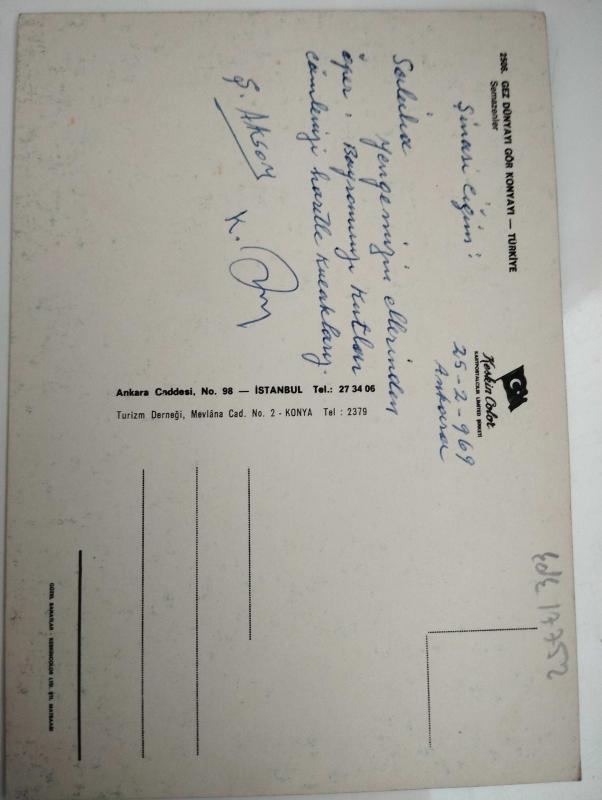 2506. GEZ DÜNYAYI GÖR KONYAYI — TÜRKİYE
Semazenler
Keskin Color
KARTPOSTALCILIK LİMİTED ŞİRKETİ
25-2-969
Ankara
Şinasi Ciğim!
Saliha Yengemizin ellerinden
öper, Bayramınızı kutlar
cümlenizi hasretle kucaklarız.
Ş. Aksoy
K.
Ankara Caddesi, No. 98 — İSTANBUL Tel.: 27 34 06
Turizm Derneği, Mevlâna Cad. No. 2 - KONYA Tel : 2379
GÜZEL SANATLAR - KESKİNCOLOR LTD. ŞTİ. MATBAASI
EdE 17752